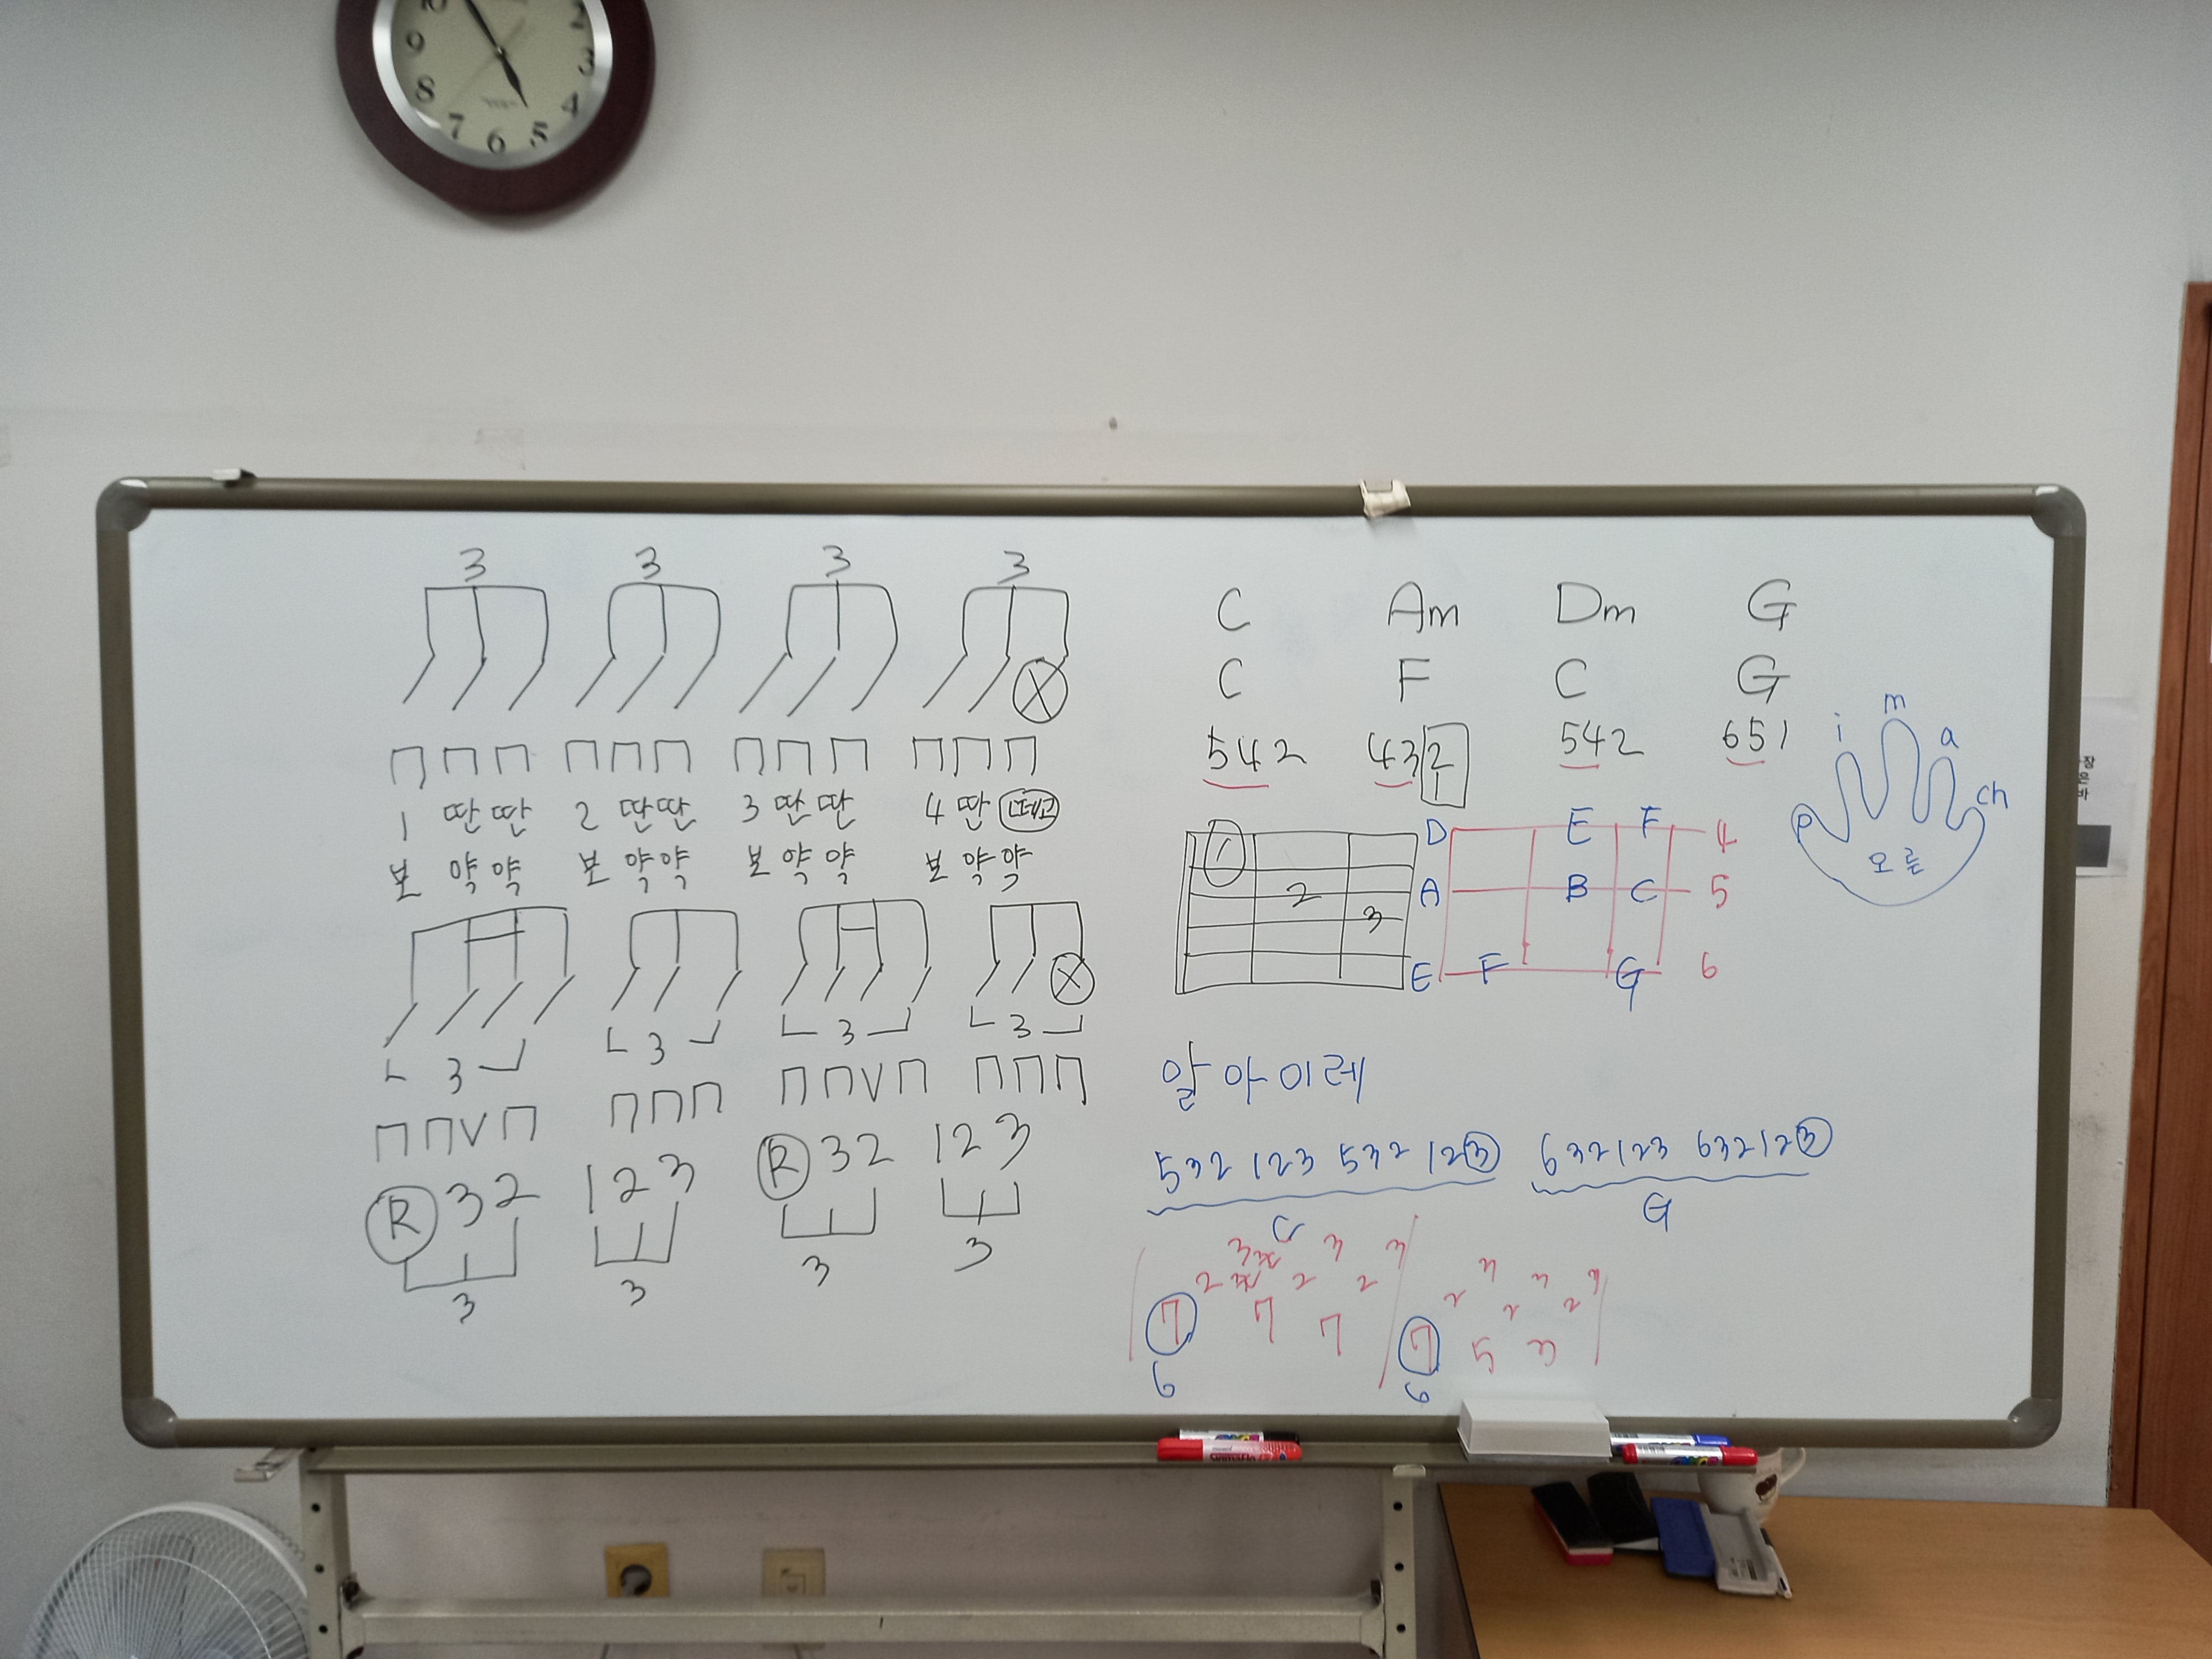 10 2
9 3
8 4
7 6 5
3 3 3 3
1 딴 딴 2 딴 딴 3 딴 딴 4 딴 떼고
보 약 약 보 약 약 보 약 약 보 약 약
3 3 3 3
V V
R 3 2 1 2 3 R 3 2 1 2 3
3 3 3 3
C Am Dm G
C F C G
542 432 542 651
1
1
2
3
D E F 4
A B C 5
E F G 6
i m a
p ch
오른
알 아 이 레
532 123 532 123 632123 632123
C G
3 3 3 3 3 3
2 2 2 2 2 2
7 7 7 7 5 3
6 6
장
은
바